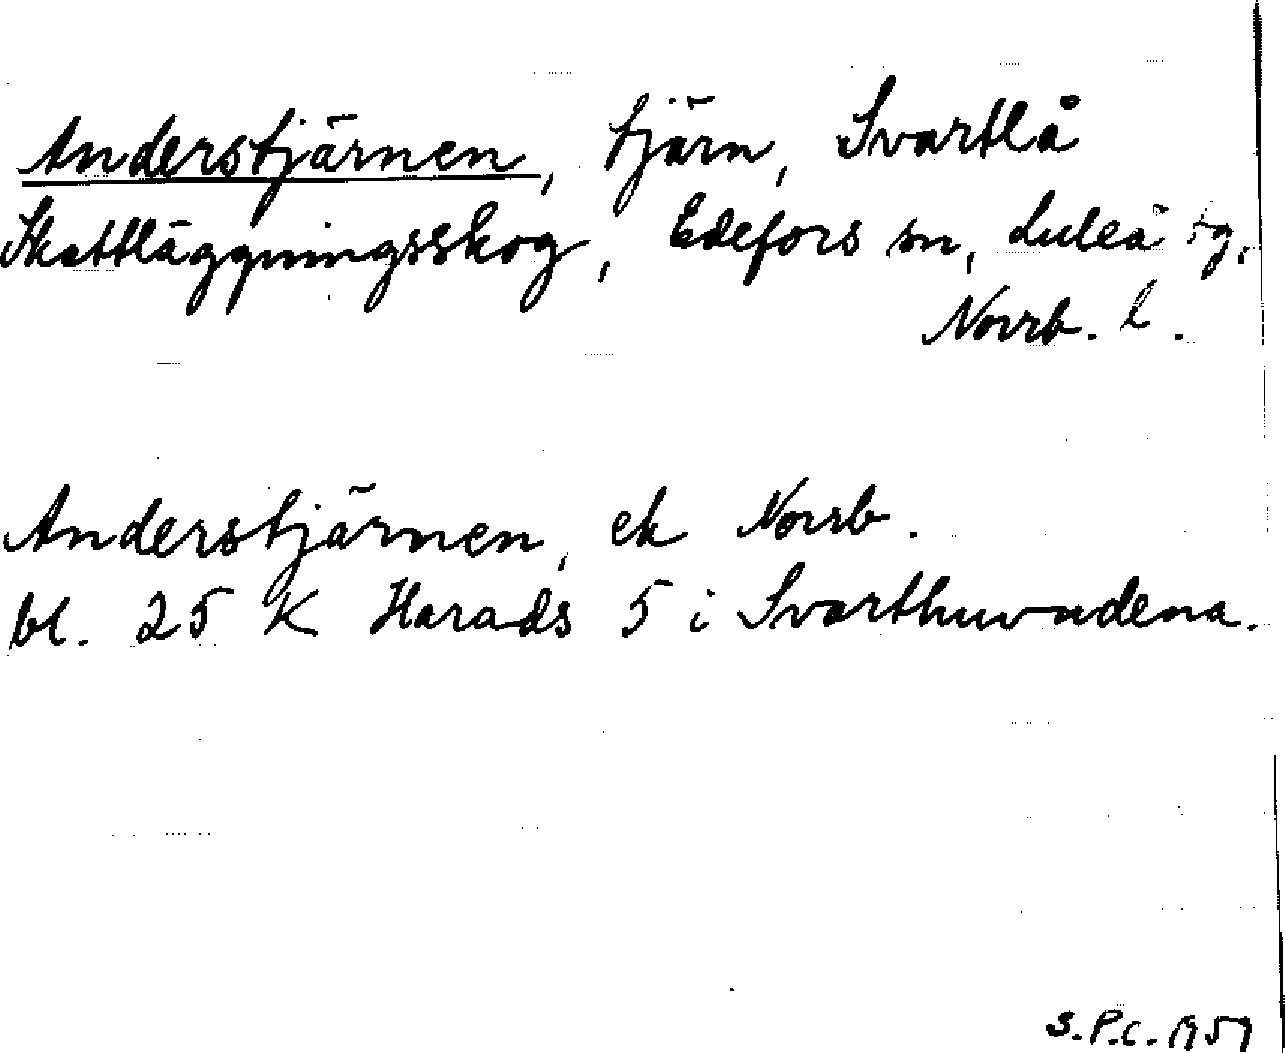 Anderstjärnen, tjärn, Svartlå
Skattläggningsskog, Edefors sn, Luleå tg,
Norrb. l.
Anderstjärnen, ek Norrb.
bl. 25 K Harads 5 i Svarthuvudena.
S.P.C. 1957